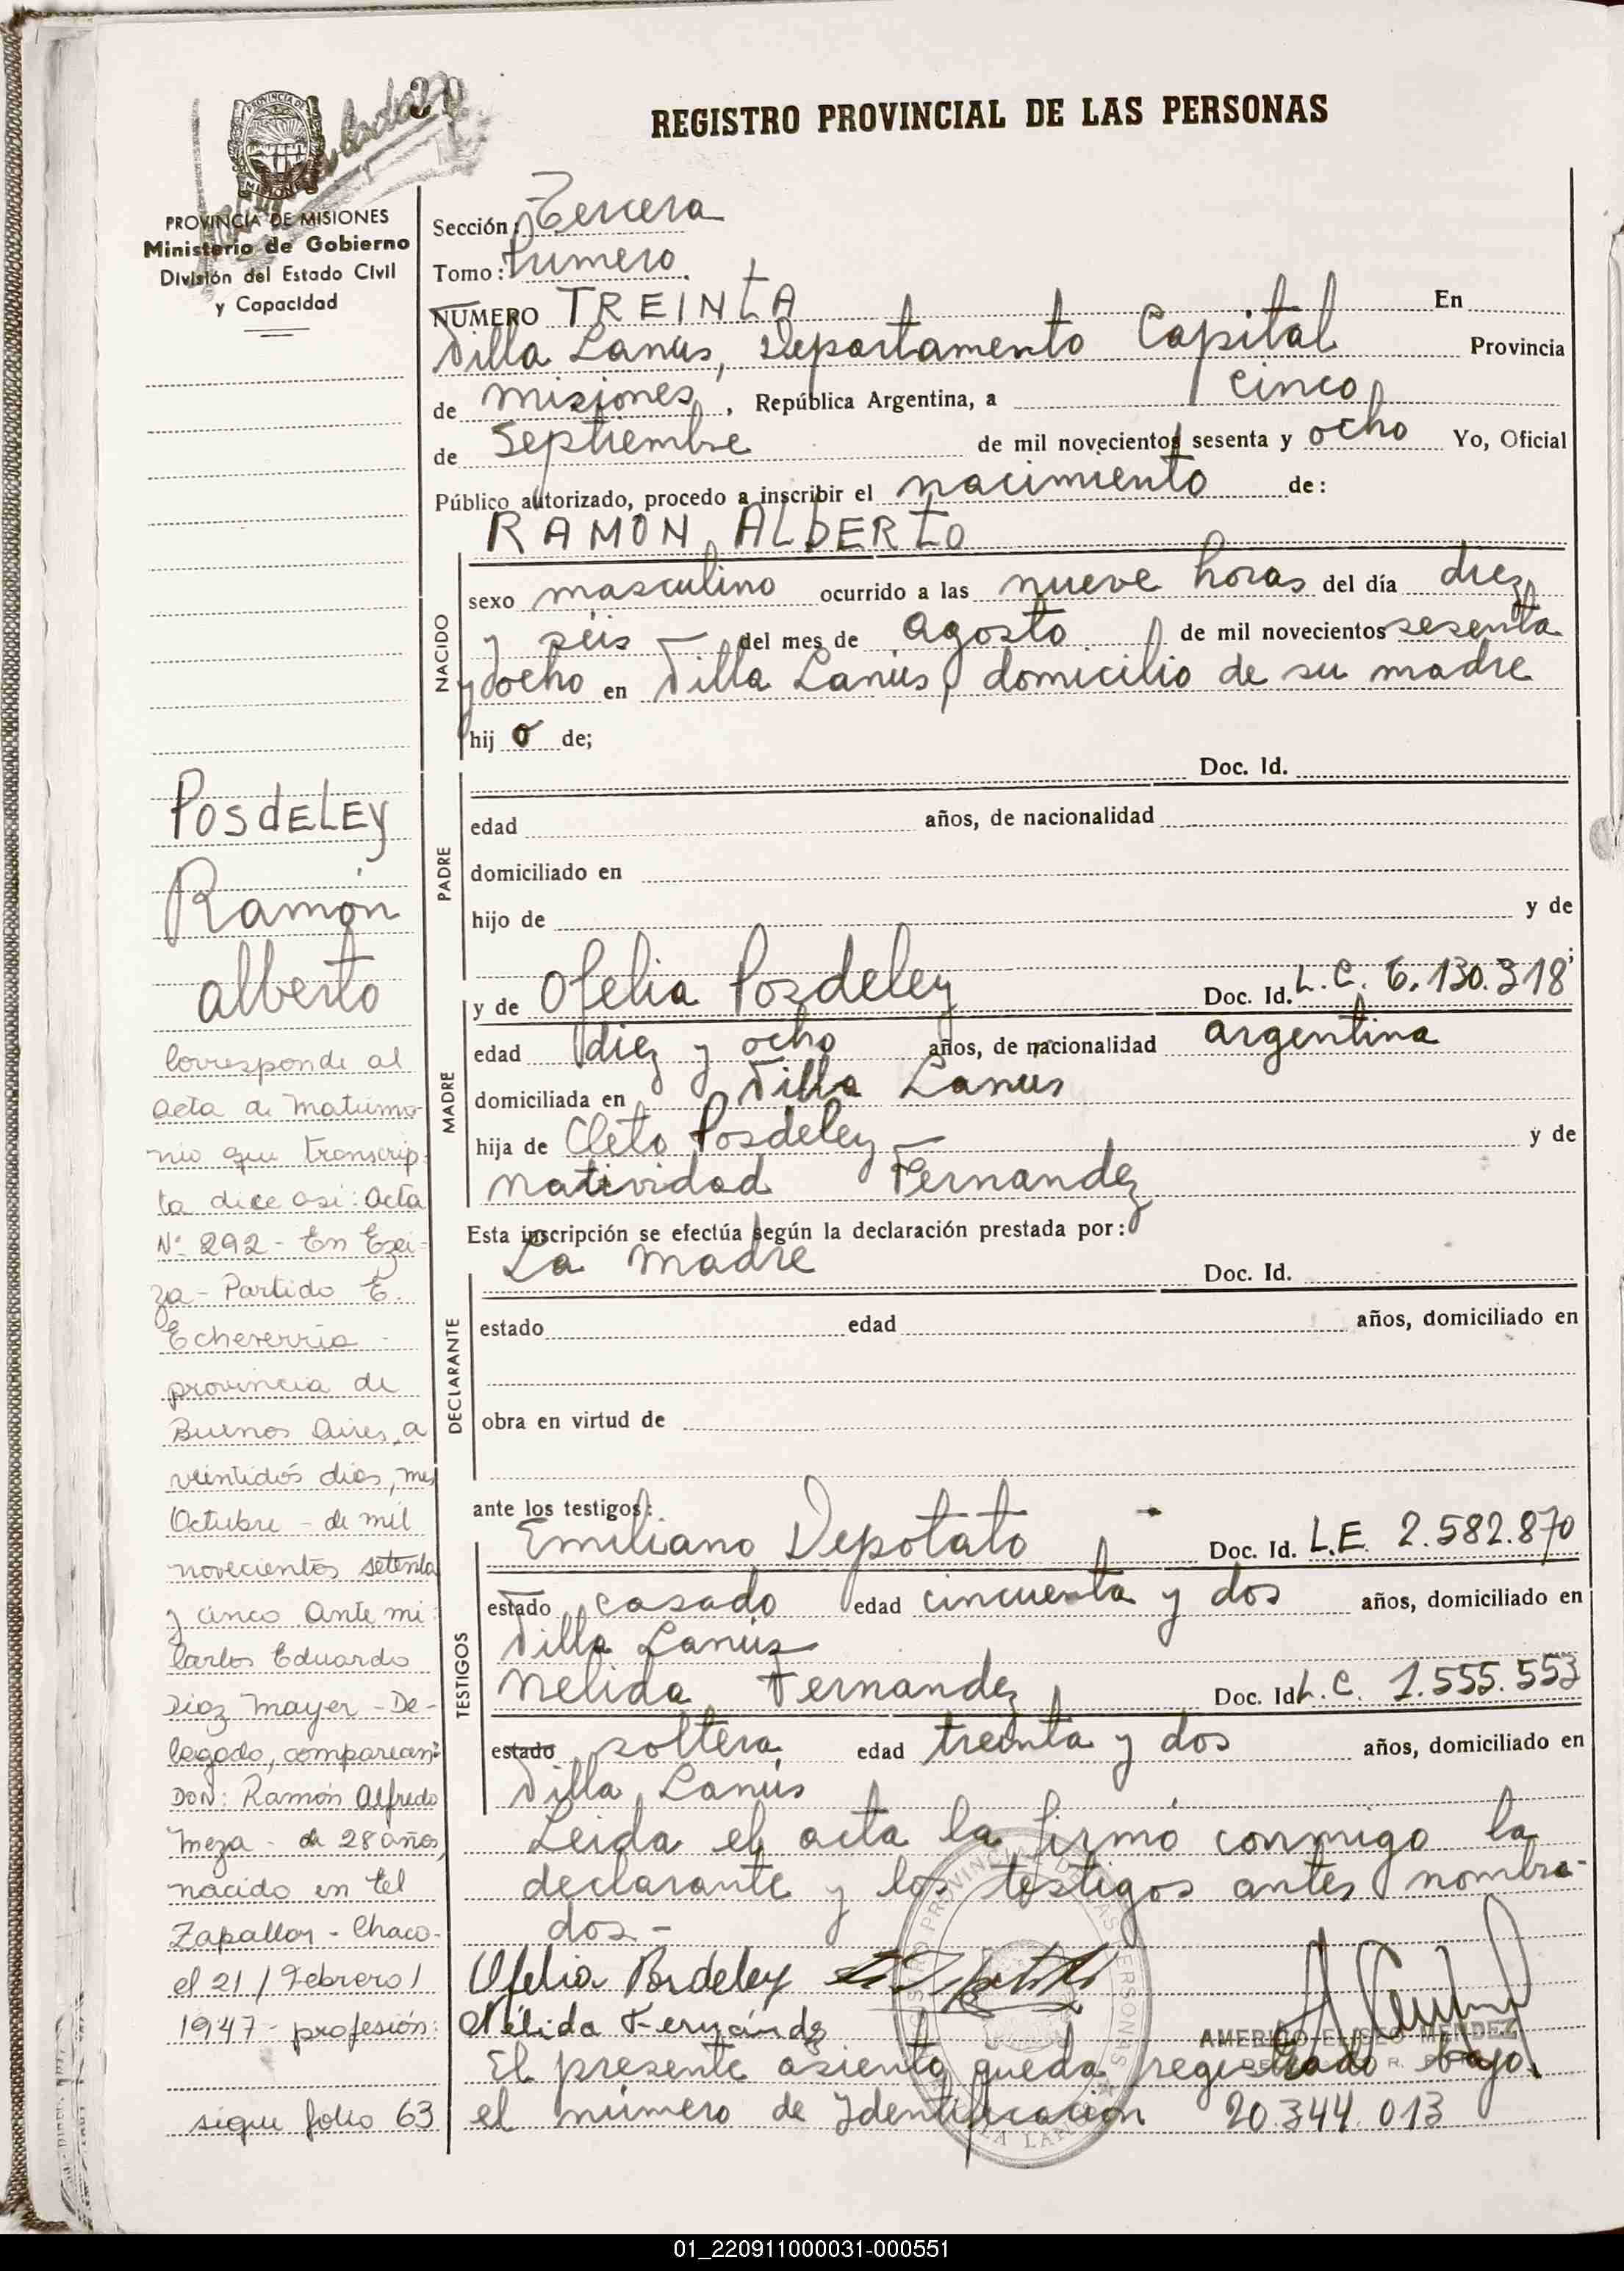 REGISTRO PROVINCIAL DE LAS PERSONAS
PROVINCIA DE MISIONES
Ministerio de Gobierno
División del Estado Civil
y Capacidad
Posdeley
Ramón
alberto
Corresponde al
acta de matrimo-
nio que transcrip-
ta dice asi: Acta
Nº 292 - En Ezei-
za - Partido E.
Echeverria -
provincia de
Buenos Aires, a
veintidós dias, mes
Octubre - de mil
novecientos setenta
y cinco. Ante mi:
Carlos Eduardo
Diaz Mayer - De-
legado, comparecen:
DON: Ramón Alfredo
Meza - de 28 años,
nacido en El
Zapallar - Chaco -
el 21 / Febrero /
1947 - profesión:
sigue folio 63
Sección: Tercera
Tomo: Primero.
NUMERO TREINTA En
Villa Lanus, Departamento Capital Provincia
de Misiones, República Argentina, a cinco
de Septiembre de mil novecientos sesenta y ocho Yo, Oficial
Público autorizado, procedo a inscribir el nacimiento de:
RAMON ALBERTO
NACIDO
sexo masculino ocurrido a las nueve horas del día diez
y seis — del mes de agosto de mil novecientos sesenta
y ocho en Villa Lanús, domicilio de su madre
hij o de;
PADRE
Doc. Id.
edad años, de nacionalidad
domiciliado en
hijo de y de
MADRE
y de Ofelia Posdeley Doc. Id. L. C. 6.130.318
edad diez y ocho años, de nacionalidad argentina
domiciliada en Villa Lanus
hija de Cleto Posdeley — y de
Natividad Fernandez
Esta inscripción se efectúa según la declaración prestada por:
DECLARANTE
La madre Doc. Id.
estado edad años, domiciliado en
obra en virtud de
ante los testigos:
TESTIGOS
Emiliano Depotato Doc. Id. L.E. 2.582.870
estado casado edad cincuenta y dos años, domiciliado en
Villa Lanús
Nelida Fernandez Doc. Id L. C. 1.555.553
estado soltera edad treinta y dos años, domiciliado en
Villa Lanús
Leida el acta la firmó conmigo la
declarante y los testigos antes nombra-
dos -
Ofelia Posdeley
Nélida Fernández
AMERICO ELISEO MENDEZ
El presente asiento queda registrado bajo
el número de Identificación 20.344.013
01_220911000031-000551